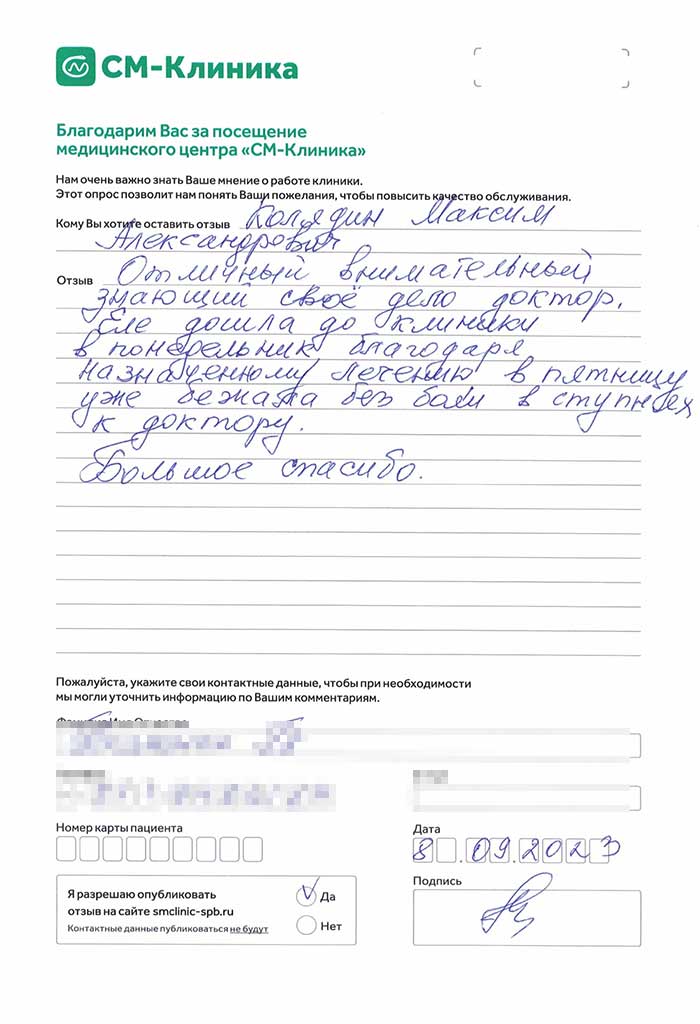 СМ-Клиника
Благодарим Вас за посещение
медицинского центра «СМ-Клиника»
Нам очень важно знать Ваше мнение о работе клиники.
Этот опрос позволит нам понять Ваши пожелания, чтобы повысить качество обслуживания.
Кому Вы хотите оставить отзыв Колядин Максим
Александрович
Отзыв Отличный внимательный
знающий своё дело доктор.
Еле дошла до клиники
в понедельник благодаря
назначенному лечению в пятницу
уже бежала без боли в ступнях
к доктору.
Большое спасибо.
Пожалуйста, укажите свои контактные данные, чтобы при необходимости
мы могли уточнить информацию по Вашим комментариям.
Номер карты пациента
Дата
8.09.2023
Я разрешаю опубликовать
отзыв на сайте smclinic-spb.ru
Контактные данные публиковаться не будут
Да
Нет
Подпись